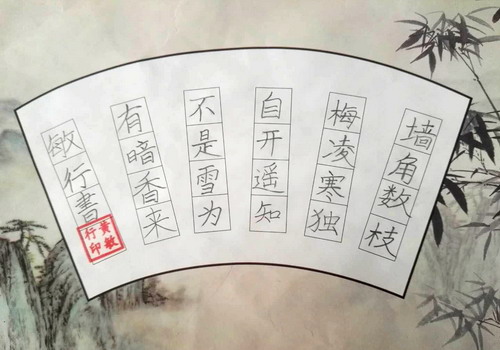 墙角数枝
梅凌寒独
自开遥知
不是雪为
有暗香来
敏行書
黄敏
行印